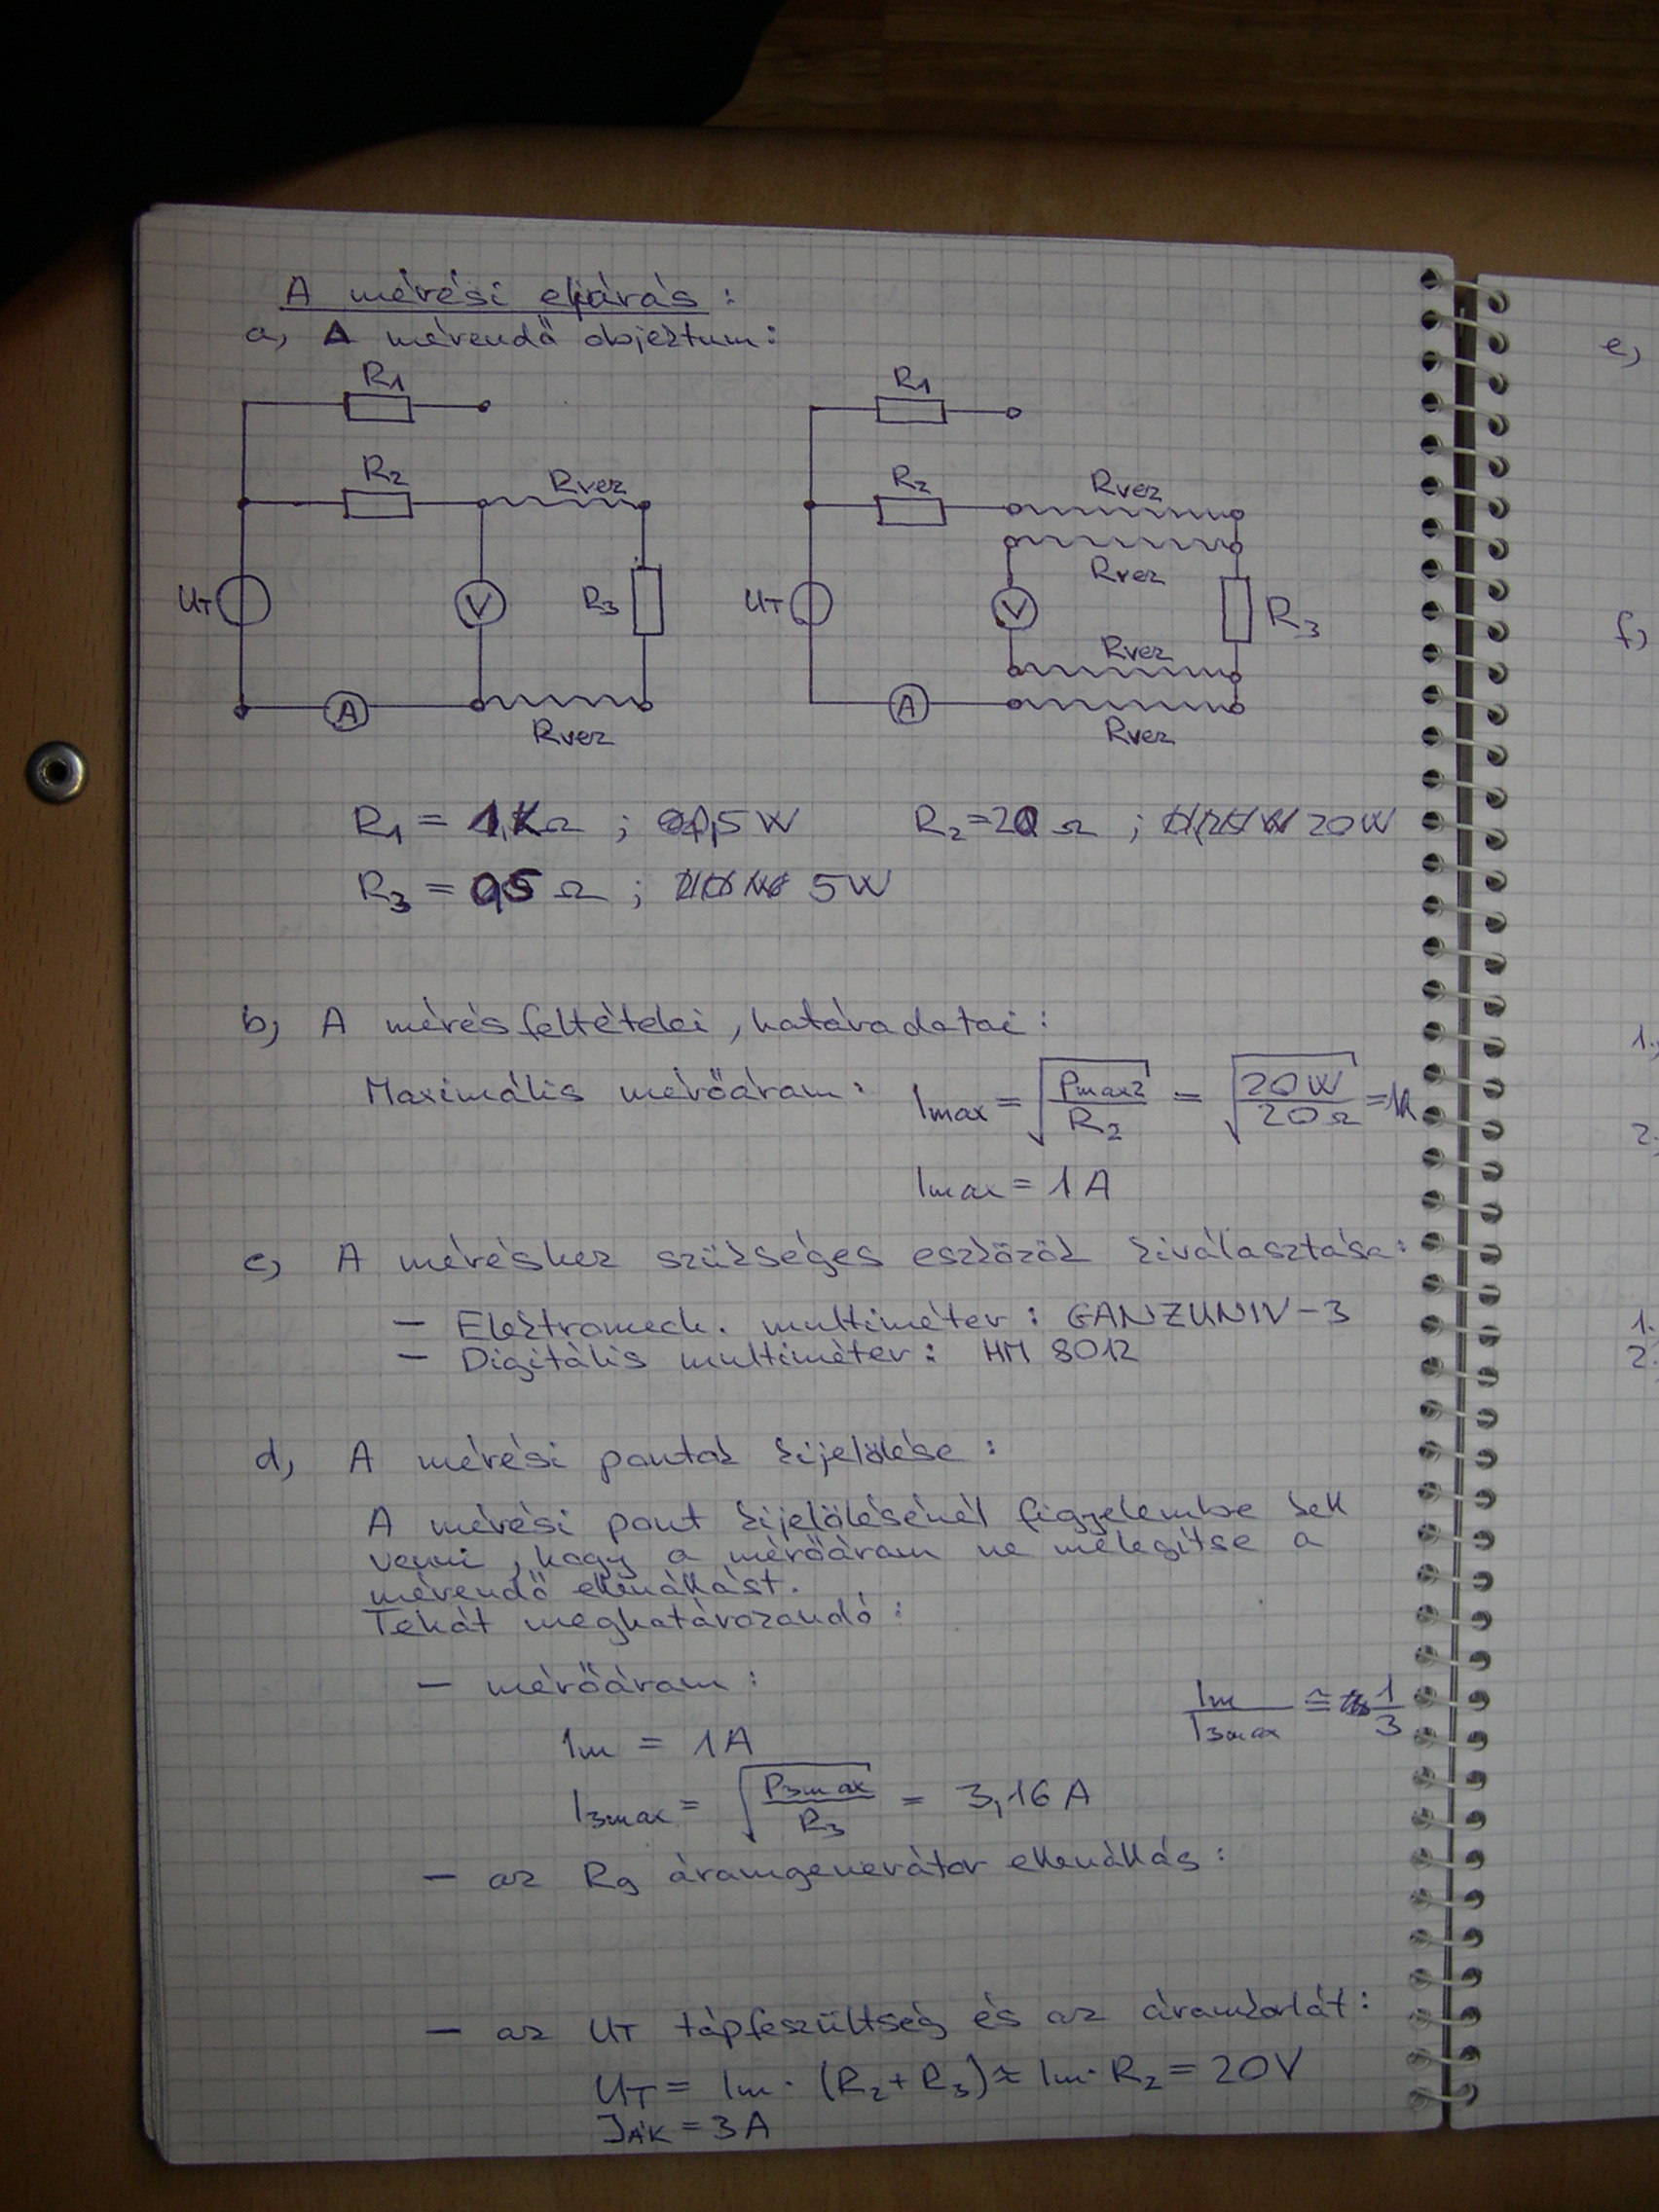 A mérési eljárás :
a, A mérendő objektum :
R1
R1
R2
Rvez
R2
Rvez
Rvez
UT
V
R3
UT
V
R3
Rvez
A
A
Rvez
Rvez
R1 = 1kΩ ; 0,5 W R2=20 Ω ; 20W
R3 = 0,5 Ω ; 5W
b, A mérés feltételei, határadatai :
Maximális mérőáram : Imax = √(Pmax2/R2) = √(20W/20Ω) = 1A
Imax = 1A
c, A méréshez szükséges eszközök kiválasztása :
- Elektromech. multiméter : GANZUNIV-3
- Digitális multiméter : HM 8012
d, A mérési pontok kijelölése :
A mérési pont kijelölésénél figyelembe kell
venni, hogy a mérőáram ne melegítse a
mérendő ellenállást.
Tehát meghatározandó :
- mérőáram :
Im/I3max ≅ 1/3
Im = 1A
I3max = √(P3max/R3) = 3,16 A
- az Rg áramgenerátor ellenállás :
- az UT tápfeszültség és az áramkorlát :
UT = Im · (R2+R3) ≈ Im · R2 = 20V
IÁK = 3A
e,
f,
1.,
2.
1.
2.